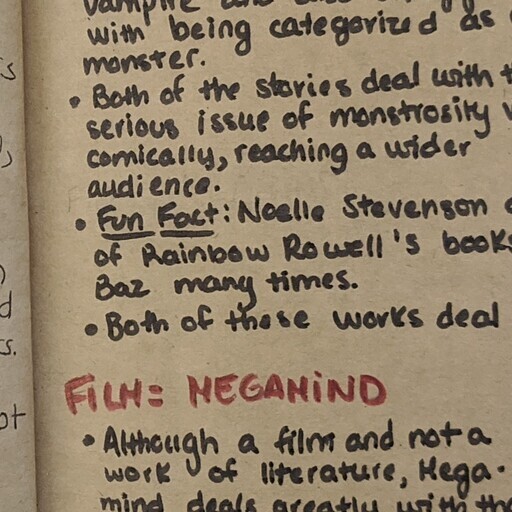 vampire and
with being categorized as
monster.
• Both of the stories deal with
serious issue of monstrosity
comically, reaching a wider
audience.
• Fun Fact: Noelle Stevenson
of Rainbow Rowell's books
Baz many times.
• Both of those works deal
FILM: MEGAMIND
• Although a film and not a
work of literature, Mega-
mind deals greatly with the